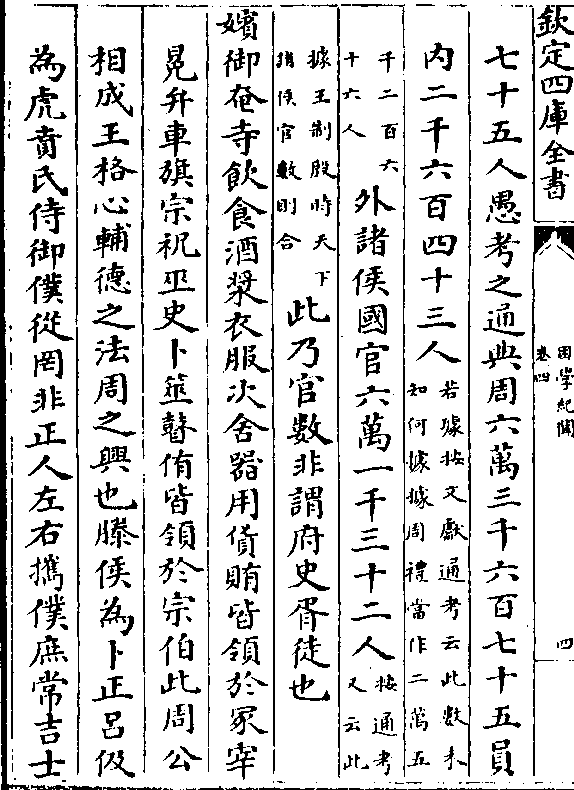 欽定四庫全書
困學紀聞
卷四
四
七十五人愚考之通典周六萬三千六百七十五員
内二千六百四十三人
若據按文獻通考云此數未
知何據據周禮當作二萬五
千二百六
十六人
外諸侯國官六萬一千三十二人
按通考
又云此
據王制殷時天下
諸侯官數則合
此乃官數非謂府史胥徒也
嬪御奄寺飲食酒漿衣服次舍器用貨賄皆領於冢宰
冕弁車旗宗祝巫史卜筮瞽侑皆領於宗伯此周公
相成王格心輔德之法周之興也滕侯為卜正呂伋
為虎賁氏侍御僕從罔非正人左右攜僕庶常吉士